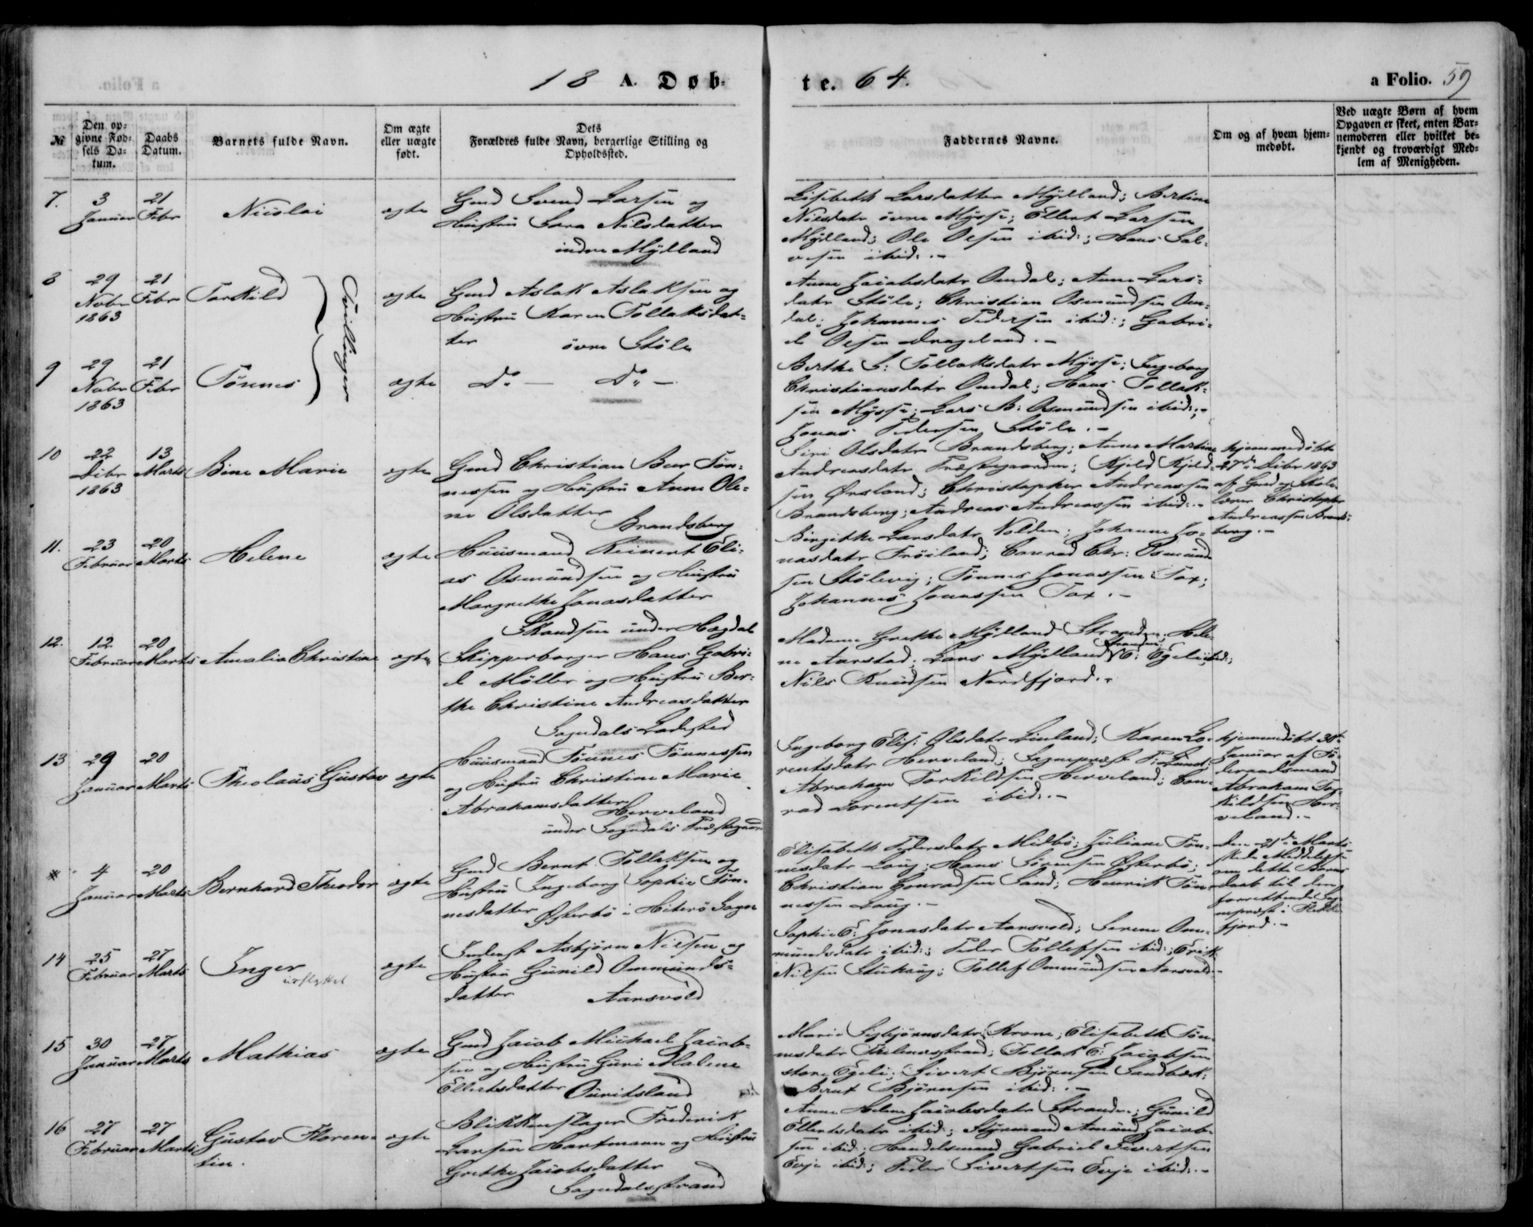 18 A. Døb-
te. 64.
a Folio. 59
№
Den op-
givne Fød-
sels Da-
tum.
Daabs
Datum.
Barnets fulde Navn.
Om ægte
eller uægte
født.
Dets
Forældres fulde Navn, borgerlige Stilling og
Opholdssted.
Faddernes Navne.
Om og af hvem hjem-
medøbt.
Ved uægte Børn af hvem
Opgaven er skeet, enten Bar-
nemoderen eller hvilket be-
kjendt og troværdigt Med-
lem af Menigheden.
7.
3
Januar
21
Febr
Nicolai
ægte
Gmd Svend Larsen og
Hustru Sara Nilsdatter
indre Mydland
Lisebeth Larsdatter Mydland; Bertine
Nilsdatr øvre Mysse; Ellert Larsen
Mydland; Ole Olsen ibid:; Hans Sal-
vesen ibid:.-
8
29
Novbr
1863
21
Febr
Torkild
Tvillinger
ægte
Gmd Aslak Aslaksen og
Hustru Karen Tollaksdat-
ter
øvre Støle
Anne Jacobsdatr Omdal; Anne Lars-
datr Støle; Christian Osmundsen Om-
dal; Johannes Pedersen ibid:; Gabri-
el Olsen Dragland.-
9
29
Novbr
1863
21
Febr
Tønnes
ægte
Do — Do —
Berthe S: Tollaksdatr Mysse; Ingeborg
Christiansdatr Omdal; Hans Tollak-
sen Mysse; Lars B: Osmundsen ibid:;
Jonas Pedersen Støle.-
10
22
Decbr
1863
13
Marts
Bine Marie
ægte
Gmd Christian Beer Tøn-
nessen og Hustru Anne Ole-
ne Olsdatter
Brandsberg
Siri Olsdatr Brandsberg; Anne Martine
Andreasdatr Præstegaarden; Kjeld Kjeld-
sen Ørsland; Christopher Andreassen
Brandsberg; Andreas Andreassen ibid:.-
hjemmedøbt
27de Decbr 1863
af Gmd og Skole-
lærer Christopher
Andreassen Brands-
berg.-
11.
23
Februar
20
Marts
Helene
ægte
Huusmand Reinert Eli-
as Osmundsen og Hustru
Margrethe Jonasdatter
Skandsen under Hægdal
Birgitte Larsdatr Nolden; Johanne Jo-
nasdatr Frøiland; Conrad Chr: Osmund-
sen Stølevig; Tønnes Jonassen Tox;
Johannes Jonassen Tox.-
12.
12
Februar
20
Marts
Amalia Christine
ægte
Skipperborger Hans Gabri-
el Møller og Hustru Ber-
the Christine Andreasdatter
Sogndals Ladested
Madame Grethe Mydland Stranden; Hele-
ne Aarstad; Lars Mydland; E: Egeli ibid:;
Nils Knudsen Nordfjord.-
13
29
Januar
20
Marts
Theolaus Gustav
ægte
Huusmand Tønnes Tønnessen
og Hustru Christine Marie
Abrahamsdatter
Herveland
under Sogndals Præstegaard
Ingeborg Elis: Olsdatr Liuland; Karen Lo-
rentsdatr Herveland; Sognepræst F: Lund;
Abraham Torkildsen Herveland; Con-
rad Lorentsen ibid:.-
hjemmedøbt 30te
Januar af Fa-
deren
Abraham Tor-
kildsen Her-
veland.-
*
4
Januar
20
Marts
Bernhard Theodor
ægte
Gmd Bernt Tollaksen og
Hustru Ingeborg Sophie Tøn-
nesdatter Østerbø i Hiterø Sogn
Elisabeth Pedersdatr Midbø; Juliane Tøn-
nesdatr Laug; Hans Tønnesen Østerbø;
Christian Conradsen Sand; Henrik Tøn-
nessen Laug.-
den 21de Marts
skede Meddelelse
om dette Barns
Daab til den
forrettende Sog-
nepræst i Flekke-
fjord.-
14
25
Februar
27
Marts
Inger
udflyttet
ægte
Inderst Asbjørn Nilsen og
Hustru Gunild Ommunds-
datter
Aarsvold
Sophie E: Jonasdatr Aarsvold; Serine Om-
mundsdatr ibid:; Peder Tollefsen ibid:; Erik
Nilsen Stuhaug; Tollef Ommundsen Aarsvold.-
15
30
Januar
27
Marts
Mathias
ægte
Gmd Jacob Michael Jacob-
sen og Hustru Guri Malene
Ellertsdatter Ouritsland
Marie Sigbjørnsdatr Krone; Elisabeth Tøn-
nesdatr; Tollak E: Jacobsen
store Egeli; Sivert Bjørnsen Sandbæk;
Bernt Bjørnsen ibid:.-
16
27
Februar
27
Marts
Gustav Floren-
tin.
ægte
Blikkenslager Frederik
Larsen Hartmann og Hustru
Grethe Jacobsdatter
Sogndalsstrand
Anne Helene Jacobsdatr Stranden; Gunild
Ellertsdatr ibid:; Styrmand Amund Jacob-
sen ibid:; Handelsmand Gabriel Sivertsen
Eeje ibid:; Peder Sivertsen Eeje ibid:.-